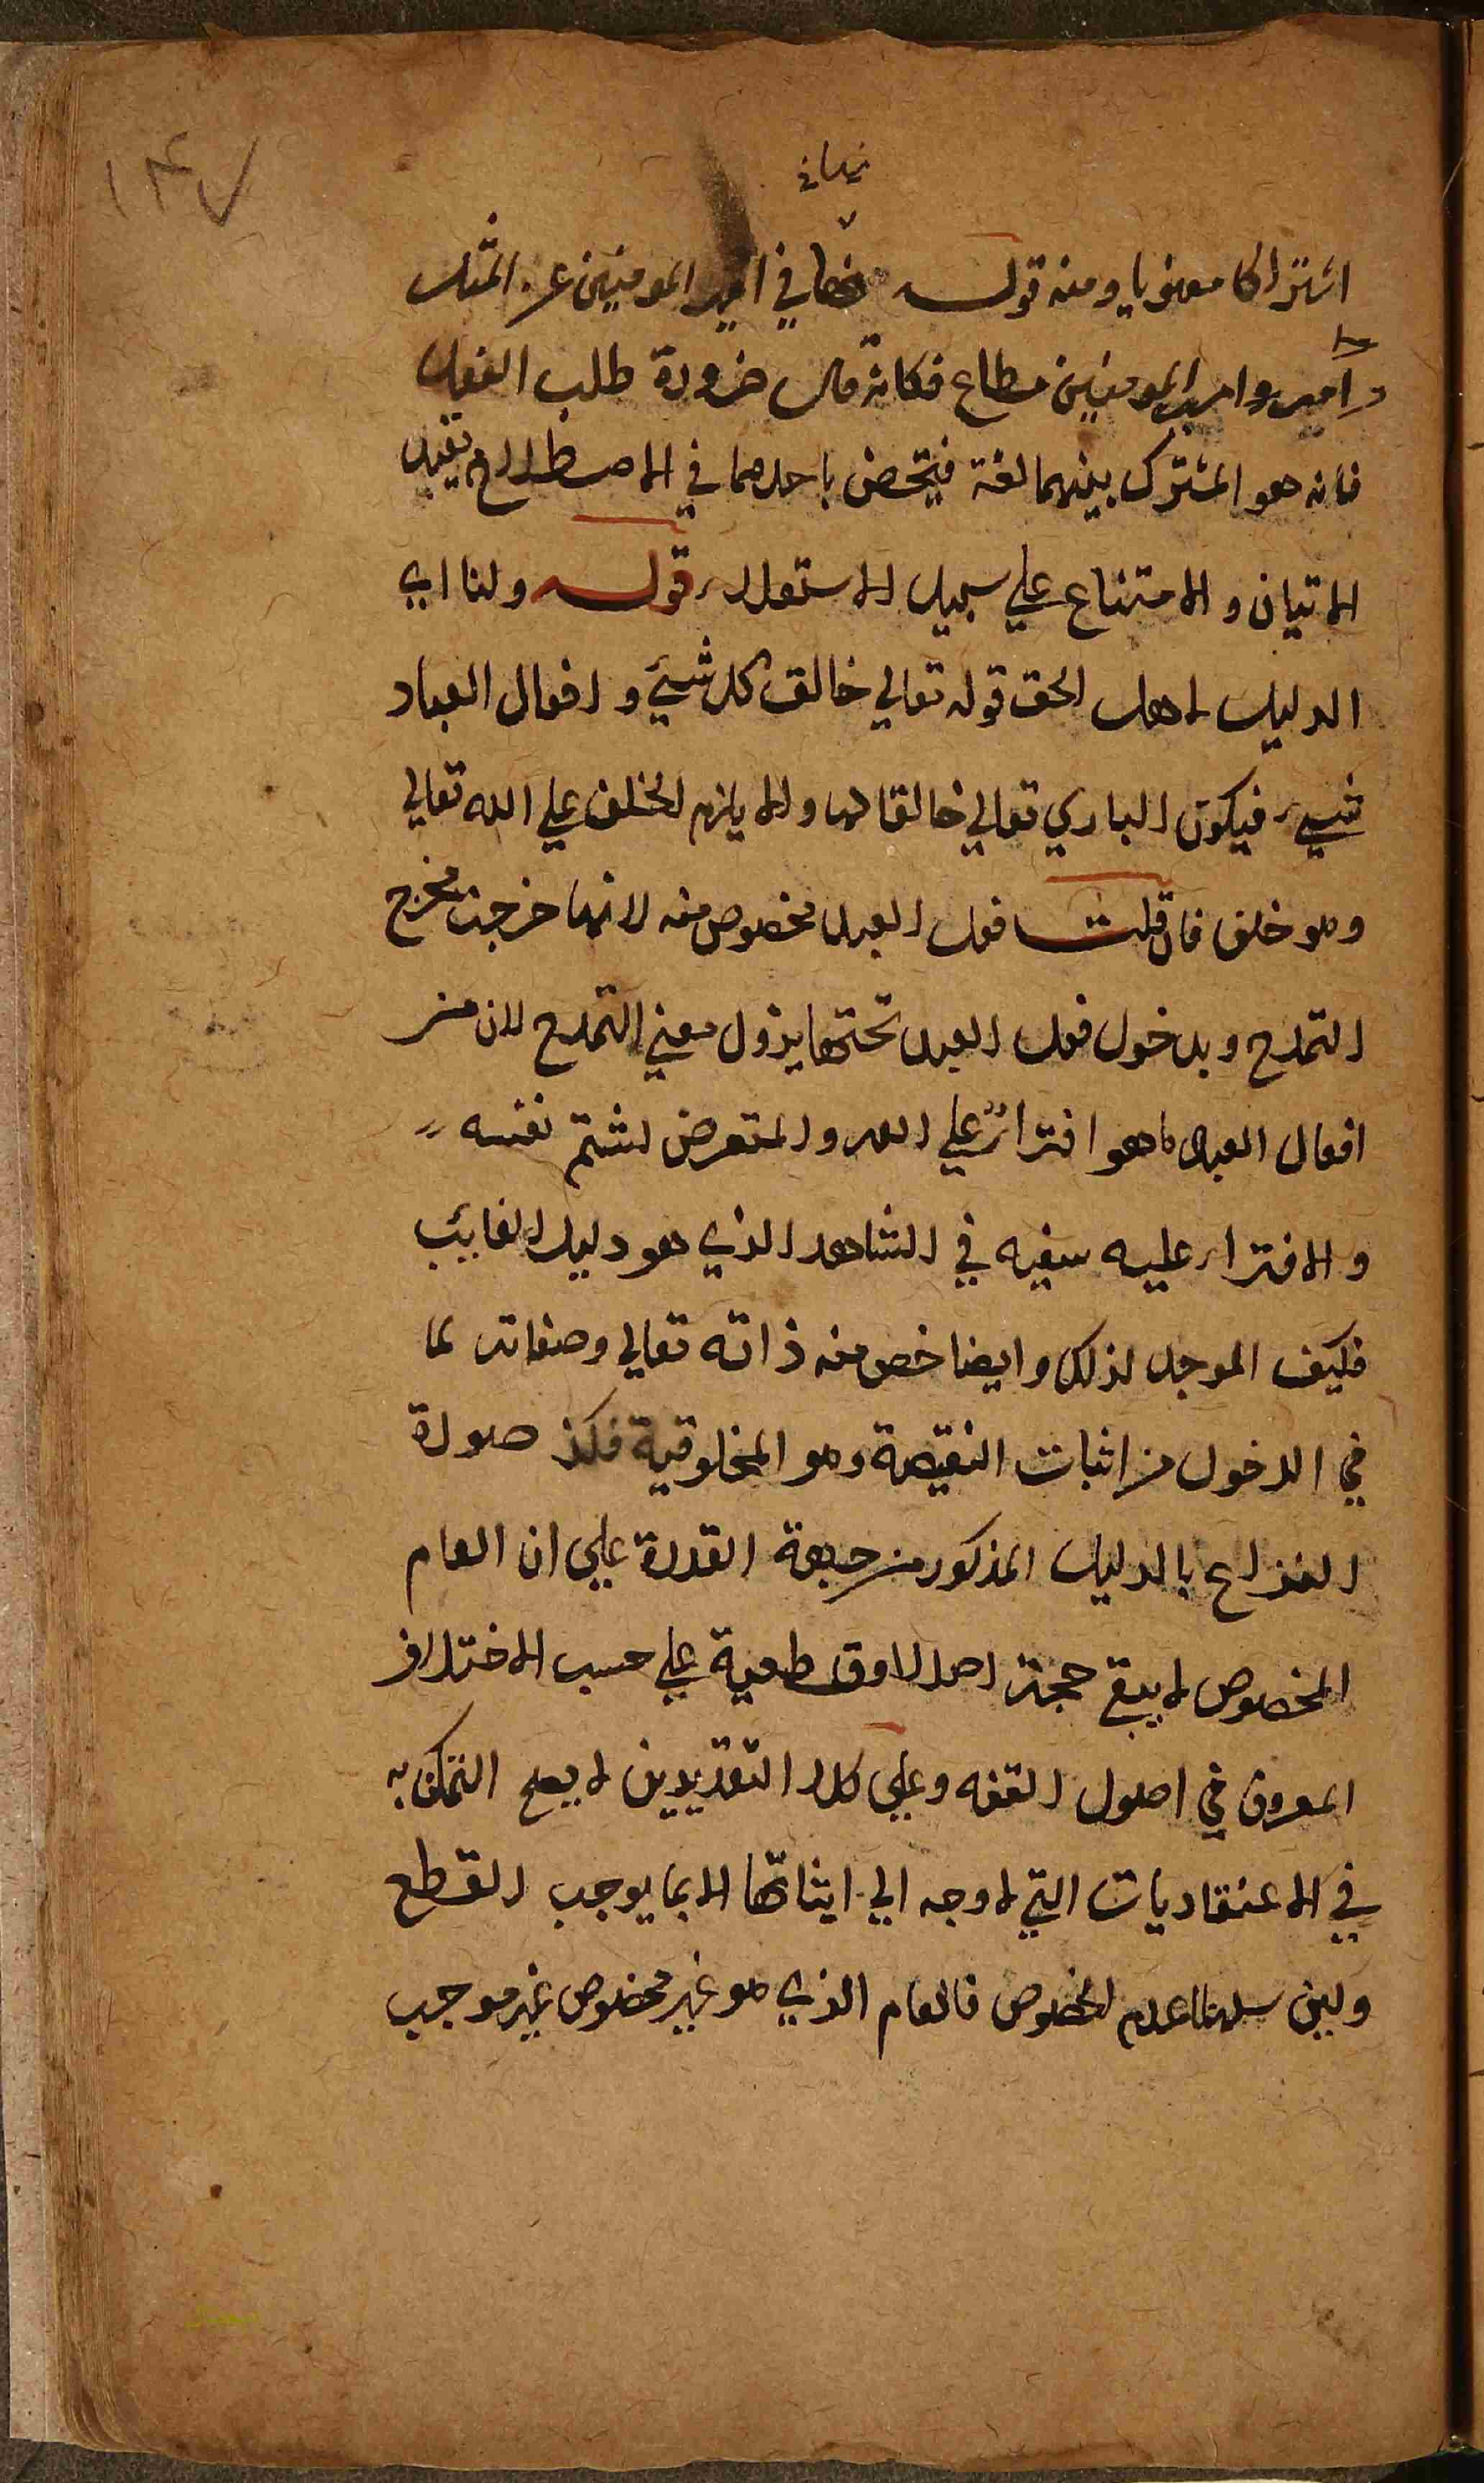 ١٤٧
نهاني
اشتراكا معنويا ومنه قوله نهاني امير المومنين عن المثلة
وامير المومنين مطاع فكانه قال ضرورة طلب الفعل
فانه هو المشترك بينهما لغة فيتخصص باحدهما في الاصطلاح بقيد
الاتيان والامتناع علي سبيل الاستعلاء قوله ولنا اي
الدليل لاهل الحق قوله تعالي خالق كل شيئ وافعال العباد
شيئ فيكون الباري تعالي خالقا لها والا يلزم الخلف علي الله تعالي
وهو خلف فان قلت فعل العبد مخصوص منه لانها خرجت مخرج
التمدح وبدخول فعل العبد تحتها يزول معني التمدح لان من
افعال العباد ما هو افتراء علي الله والمتعرض لشتم نفسه
والافتراء عليه سفيه في الشاهد الذي هو دليل الغايب
فكيف الموجد لذلك وايضا خص منه ذاته تعالي وصفاته لما
في الدخول من اثبات النقيصة وهو المخلوقية فكذ صورة
النزاع بالدليل المذكور من جهة القدرة علي ان العام
المخصوص لا يبقي حجة اصلا او قطعية علي حسب الاختلاف
المعروف في اصول الفقه وعلي كلا التقديرين لا يصح التمسك به
في الاعتقاديات التي لا وجه الي اثباتها الا بما يوجب القطع
ولين سلمنا عدم الخصوص فالعام الذي هو غير مخصوص غير موجب